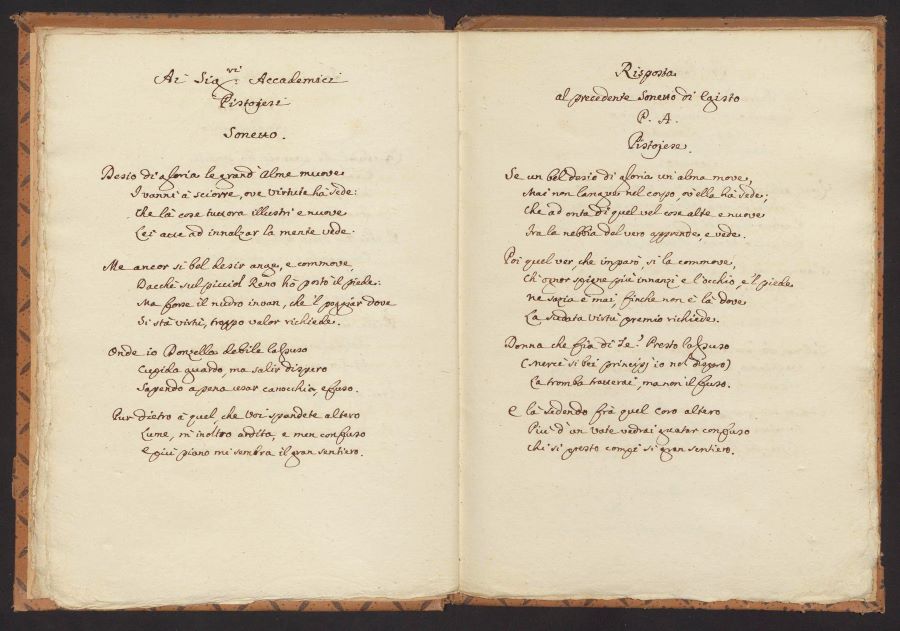 Ai Sig.ri Accademici
Pistojesi
Sonetto.
Desio di gloria le grand' Alme muove
I vanni à sciorre, ove Virtute hà Sede:
Che là cose tuttora illustri e nuove
Lei atte ad innalzar la mente vede.
Me ancor sì bel desir ange, e commove,
Dacchè sul picciol Reno hò posto il piede:
Ma forse il nudro invan, che 'l poggiar dove
Si stà virtù, troppo valor richiede.
Onde io Donzella debile la
guardo, ma salir dispero
Sapendo a pena usar canocchia, e fuso.
Pur dietro à quel, che Voi spandete altero
Lume, m'inoltro ardita, e men confuso
E più piano mi sembra il gran sentiero.
Risposta
al precedente Sonetto di Egisto
P. A.
Pistojese.
Se un bel desio di gloria un'alma move,
Mai non langue nel corpo, ov'ella hà sede;
Che ad onta di quel vel cose alte e nuove
Fra la nebbia del vero apprende, e vede.
Poi quel ver, che imparò, sì la commove,
Ch' ognor spigne più innanzi e l'occhio, e 'l piede
Ne sazia è mai, finche non è là dove
La sudata virtù premio richiede.
Donna che fia di Te? Presto
(Mercè sì bei principj io nol dispero)
La tromba tratterai, ma non il fuso.
E là sedendo frà quel Coro altero
Più d'un Vate vedrai guatar confuso
Chi sì presto compì sì gran sentiero.